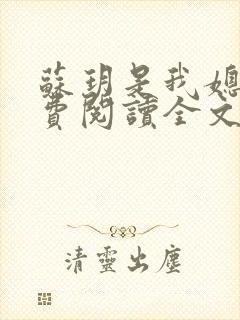 蘇玥是我媳
費閱讀全文
清靈出塵